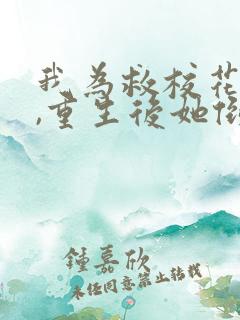 我為救校花
,重生後她
鍾嘉欣
未经同意禁止转载